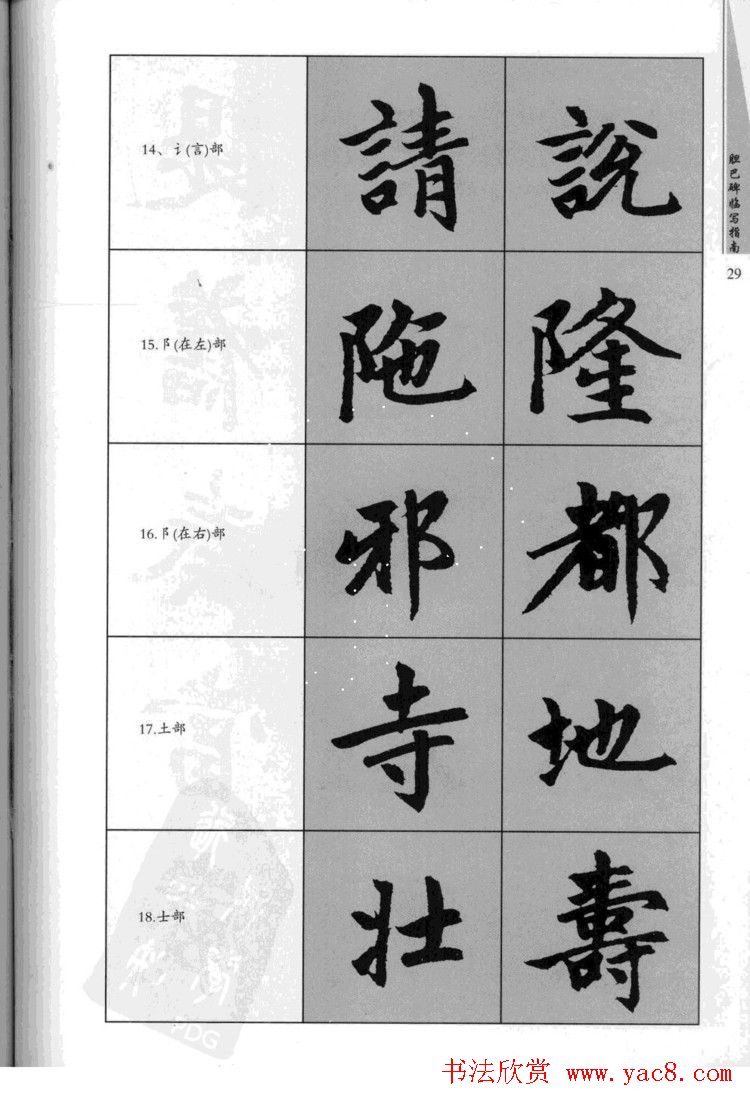 14、讠(言)部
請 說
15.阝(在左)部
陁 隆
16.阝(在右)部
邪 都
17.土部
寺 地
18.士部
壮 壽
胆巴碑临写指南
29
PDG
书法欣赏 www.yac8.com